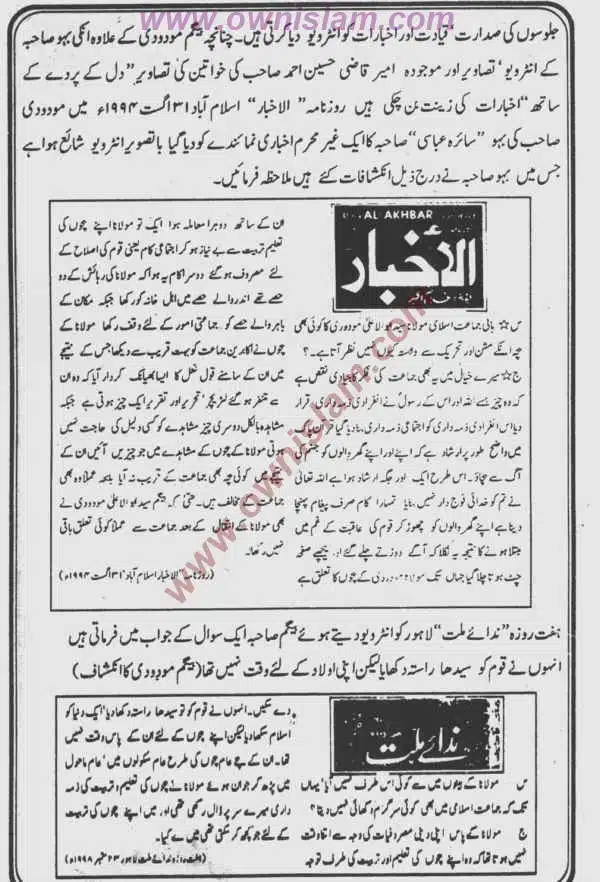 www.ownislam.com
جلوسوں کی صدارت، قیادت اور اخبارات کو انٹرویو دیا کرتی ہیں۔ چنانچہ بیگم مودودی کے علاوہ انکی بہو صاحبہ
کے انٹرویو، تصاویر اور موجودہ امیر قاضی حسین احمد صاحب کی خواتین کی تصاویر "دل کے پردے کے
ساتھ" اخبارات کی زینت بن چکی ہیں روزنامہ "الاخبار" اسلام آباد ۳۱ اگست ۱۹۹۴ء میں مودودی
صاحب کی بہو "سائرہ عباسی" صاحبہ کا ایک غیر محرم اخباری نمائندے کو دیا گیا باتصویر انٹرویو شائع ہوا ہے
جس میں بہو صاحبہ نے درج ذیل انکشافات کئے ہیں ملاحظہ فرمائیں۔
AL AKHBAR
الأخبار
س ☆ بانی جماعت اسلامی مولانا سید ابو الاعلیٰ مودودی کا کوئی بھی
چہ انکے مشن اور تحریک سے وابستہ کیوں نہیں نظر آتا ہے؟
ج ☆ میرے خیال میں یہ بھی جماعت کی فکر کا بنیادی نقص ہے
کہ وہ چیز جسے اللہ اور اس کے رسولؐ نے انفرادی ذمہ داری قرار
دیا اس انفرادی ذمہ داری کو اجتماعی ذمہ داری بنا دیا گیا قرآن پاک
میں واضح طور پر ارشاد ہے کہ اپنے اور اپنے گھر والوں کو جہنم کی
آگ سے بچاؤ۔ اس طرح ایک اور جگہ ارشاد ہوا ہے اللہ تعالیٰ
نے تم کو خدائی فوج دار نہیں بنایا تمہارا کام صرف پیغام پہنچا
دینا ہے اپنے گھر والوں کو چھوڑ کر قوم کی عاقبت کے غم میں
مبتلا ہونے کا نتیجہ یہ نکلا کہ آگے دوڑتے چلے گئے اور پیچھے صفحہ
چٹ ہوتا چلا گیا جہاں تک مولانا مودودی کے چوں کا تعلق ہے
ان کے ساتھ دوہرا معاملہ ہوا ایک تو مولانا اپنے چوں کی
تعلیم تربیت سے بے نیاز ہو کر اجتماعی کام یعنی قوم کی اصلاح کے
لئے مصروف ہو گئے دوسرا کام یہ ہوا کہ مولانا کی رہائش کے دو
حصے تھے اندر والے حصے میں اہل خانہ کو رکھا جبکہ مکان کے
باہر والے حصے کو جماعتی امور کے لئے وقف رکھا مولانا کے
چوں نے اکابرین جماعت کو بہت قریب سے دیکھا جس کے نتیجے
میں ان کے سامنے قول فعل کا ایسا بھیانک کردار آیا کہ وہ ان
سے متنفر ہو گئے لٹریچر، تحریر اور تقریر ایک چیز ہوتی ہے جبکہ
مشاہدہ بالکل دوسری چیز مشاہدے کو کسی دلیل کی حاجت نہیں
ہوتی مولانا کے چوں کے مشاہدے میں جو چیزیں آئیں ان کے
نتیجے میں کوئی چہ بھی جماعت کے قریب نہ آیا بلکہ عملاً وہ بھی
جماعت کے مخالف ہیں۔ حتیٰ کہ بیگم سید ابو الاعلیٰ مودودی نے
بھی مولانا کے انتقال کے بعد جماعت سے عملاً کوئی تعلق باقی
نہیں رکھا۔
(روزنامہ "الاخبار اسلام آباد" ۳۱ اگست ۱۹۹۴ء)
www.ownislam.com
ہفت روزہ "ندائے ملت" لاہور کو انٹرویو دیتے ہوئے بیگم صاحبہ ایک سوال کے جواب میں فرماتی ہیں
انہوں نے قوم کو سیدھا راستہ دکھایا لیکن اپنی اولاد کے لئے وقت نہیں تھا (بیگم مودودی کا انکشاف)
ندائے ملت
س مولانا کے بیٹوں میں سے کوئی اس طرف نہیں آیا، یہاں
تک کہ جماعت اسلامی میں بھی کوئی سرگرم دکھائی نہیں دیتا؟
ج مولانا کے پاس اپنی دینی مصروفیات کی وجہ سے اتنا وقت
نہیں ہوتا تھا کہ وہ اپنے چوں کی تعلیم اور تربیت کی طرف توجہ
دے سکیں۔ انہوں نے قوم کو تو سیدھا راستہ دکھا دیا، ایک دنیا کو
اسلام سکھا دیا لیکن اپنے چوں کے لئے ان کے پاس وقت نہیں
تھا۔ ان کے چے عام چوں کی طرح عام سکولوں میں، عام ماحول
میں پڑھ کر جوان ہوئے مولانا نے چوں کی تعلیم، تربیت کی ذمہ
داری میرے سر پر ڈال رکھی تھی اور میں اپنے چوں کی تربیت
کے لئے جو کچھ کر سکتی تھی میں نے کیا۔
(ہفت روزہ ندائے ملت لاہور ۲۳ ستمبر ۱۹۹۸ء)